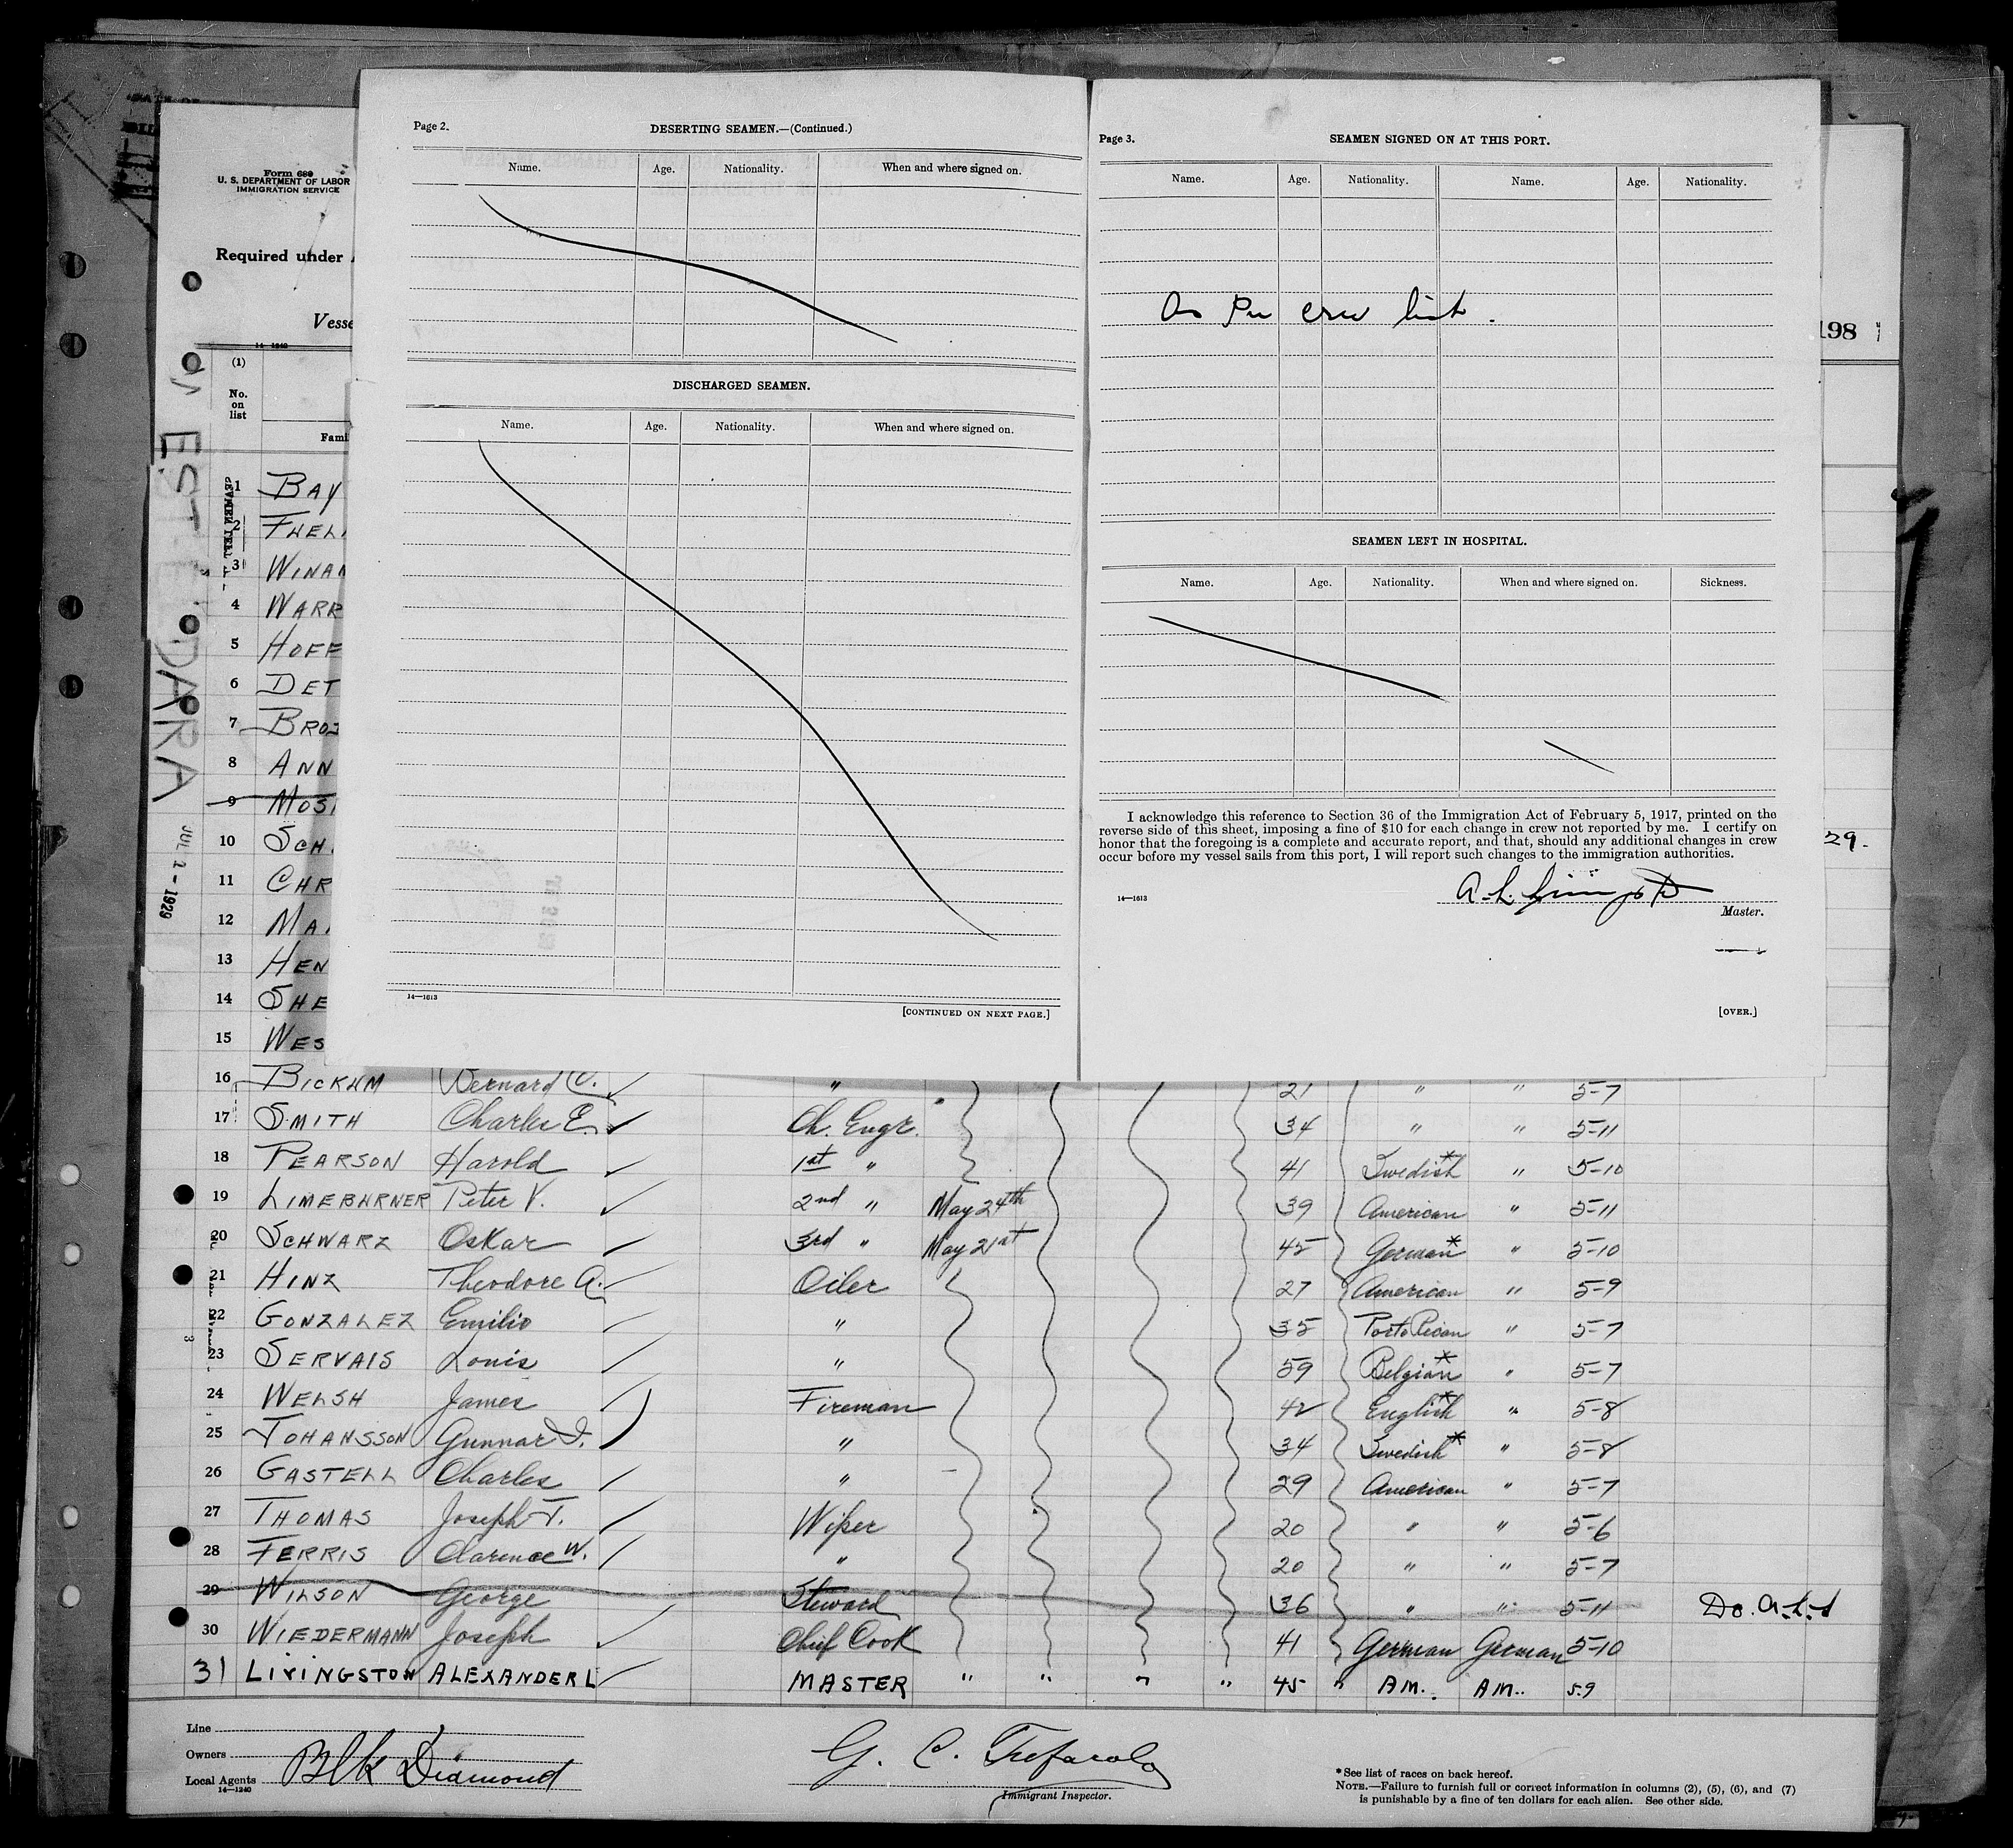 Form 689
U. S. DEPARTMENT OF LABOR
IMMIGRATION SERVICE
Required under
Vesse
14—1240
(1)
No.
on
list
Fami
ESTHER DARA
JUL 1 - 1929
198
29.
Page 2.
DESERTING SEAMEN.—(Continued.)
Name. Age. Nationality. When and where signed on.
DISCHARGED SEAMEN.
Name. Age. Nationality. When and where signed on.
14—1613
[CONTINUED ON NEXT PAGE.]
Page 3.
SEAMEN SIGNED ON AT THIS PORT.
Name. Age. Nationality. Name. Age. Nationality.
As Per crew list.
SEAMEN LEFT IN HOSPITAL.
Name. Age. Nationality. When and where signed on. Sickness.
I acknowledge this reference to Section 36 of the Immigration Act of February 5, 1917, printed on the
reverse side of this sheet, imposing a fine of $10 for each change in crew not reported by me. I certify on
honor that the foregoing is a complete and accurate report, and that, should any additional changes in crew
occur before my vessel sails from this port, I will report such changes to the immigration authorities.
14—1613
A. L. Livingston
Master.
[OVER.]
1 BAY
2 THEL
3 WINAN
4 WARR
5 HOFF
6 DET
7 BROS
8 ANN
9 MOSI
10 SCH
11 CHR
12 MA
13 HEN
14 SHE
15 WES
16 BICKHM Bernard C. " 21 " " 5-7
17 SMITH Charles E. Ch. Engr. 34 " " 5-11
18 PEARSON Harold 1st " 41 Swedish* " 5-10
19 LIMEBURNER Peter V. 2nd " May 24th 39 American " 5-11
20 SCHWARZ Oskar 3rd " May 21st 45 German* " 5-10
21 HINZ Theodore A. Oiler 27 American " 5-9
22 GONZALEZ Emilio " 35 Porto Rican " 5-7
23 SERVAIS Louis " 59 Belgian* " 5-7
24 WELSH James Fireman 42 English* " 5-8
25 JOHANSSON Gunnar I. " 34 Swedish* " 5-8
26 GASTELL Charles " 29 American " 5-7
27 THOMAS Joseph T. Wiper 20 " " 5-6
28 FERRIS Clarence W. " 20 " " 5-7
29 WILSON George Steward 36 " " 5-11 Do. A.L.L
30 WIEDERMANN Joseph Chief Cook 41 German German 5-10
31 LIVINGSTON ALEXANDER L MASTER " " " " 45 " AM. AM. 5-9
Line
Owners
Local Agents Blk Diamond
14—1240
Immigrant Inspector.
* See list of races on back hereof.
NOTE.—Failure to furnish full or correct information in columns (2), (5), (6), and (7)
is punishable by a fine of ten dollars for each alien. See other side.